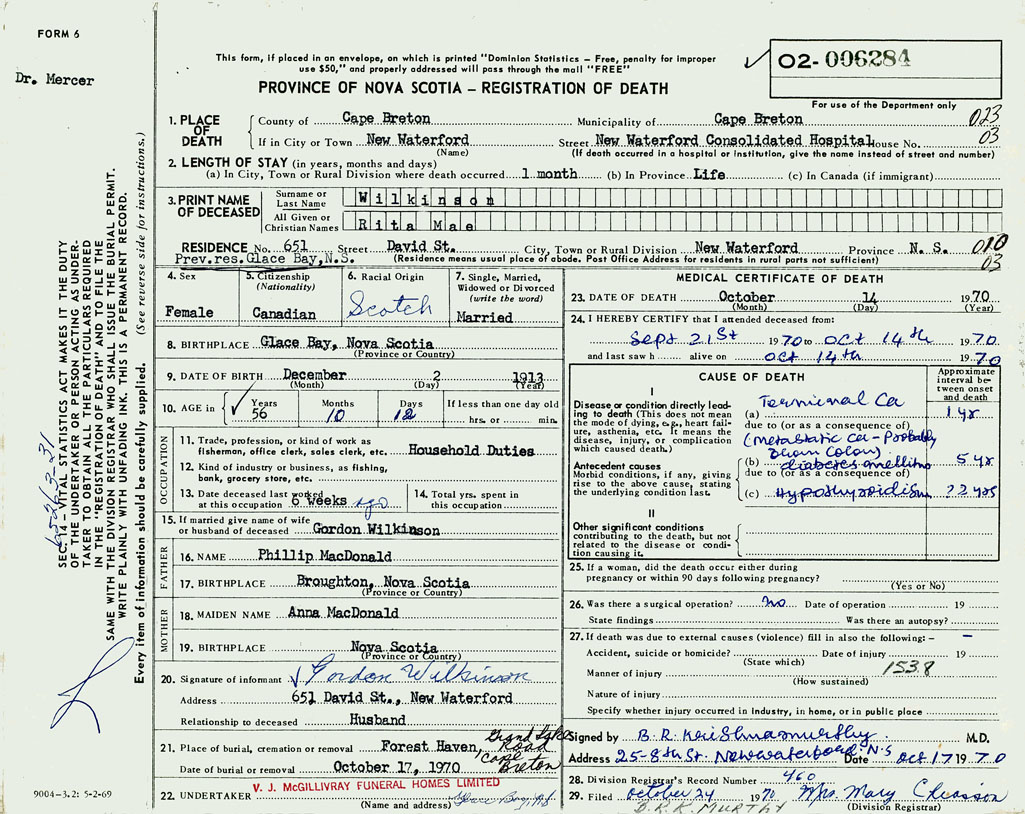 FORM 6
Dr. Mercer
This form, if placed in an envelope, on which is printed "Dominion Statistics - Free, penalty for improper
use $50," and properly addressed will pass through the mail "FREE"
PROVINCE OF NOVA SCOTIA - REGISTRATION OF DEATH
02-006284
For use of the Department only
023
03
1. PLACE OF DEATH
County of Cape Breton Municipality of Cape Breton
If in City or Town New Waterford Street New Waterford Consolidated Hospital House No.
(Name) (If death occurred in a hospital or institution, give the name instead of street and number)
2. LENGTH OF STAY (in years, months and days)
(a) In City, Town or Rural Division where death occurred 1 month (b) In Province Life (c) In Canada (if immigrant)
3. PRINT NAME OF DECEASED
Surname or Last Name Wilkinson
All Given or Christian Names Rita Mae
RESIDENCE No. 651 Street David St. City, Town or Rural Division New Waterford Province N. S.
010
03
Prev.res.Glace Bay,N.S. (Residence means usual place of abode. Post Office Address for residents in rural parts not sufficient)
4. Sex
Female
5. Citizenship
(Nationality)
Canadian
6. Racial Origin
Scotch
7. Single, Married,
Widowed or Divorced
(write the word)
Married
8. BIRTHPLACE Glace Bay, Nova Scotia
(Province or Country)
9. DATE OF BIRTH December 2 1913
(Month) (Day) (Year)
10. AGE in Years Months Days If less than one day old
56 10 12 hrs. or min.
OCCUPATION
11. Trade, profession, or kind of work as
fisherman, office clerk, sales clerk, etc. Household Duties
12. Kind of industry or business, as fishing,
bank, grocery store, etc.
13. Date deceased last worked
at this occupation 6 weeks ago
14. Total yrs. spent in
this occupation
15. If married give name of wife
or husband of deceased Gordon Wilkinson
FATHER
16. NAME Phillip MacDonald
17. BIRTHPLACE Broughton, Nova Scotia
(Province or Country)
MOTHER
18. MAIDEN NAME Anna MacDonald
19. BIRTHPLACE Nova Scotia
(Province or Country)
20. Signature of informant Gordon Wilkinson
Address 651 David St., New Waterford
Relationship to deceased Husband
21. Place of burial, cremation or removal Forest Haven, Grand Lake
Road
Cape
Breton
Date of burial or removal October 17, 1970
V. J. McGILLIVRAY FUNERAL HOMES LIMITED
22. UNDERTAKER
(Name and address) Glace Bay, N.S.
MEDICAL CERTIFICATE OF DEATH
23. DATE OF DEATH October 14 1970
(Month) (Day) (Year)
24. I HEREBY CERTIFY that I attended deceased from:
Sept 21st 1970 to Oct 14th 1970
and last saw h alive on Oct 14th 1970
CAUSE OF DEATH
Approximate
interval be-
tween onset
and death
I
Disease or condition directly lead-
ing to death (This does not mean
the mode of dying, e.g., heart fail-
ure, asthenia, etc. It means the
disease, injury, or complication
which caused death.)
(a) Terminal Ca 1 yr
due to (or as a consequence of)
(metastatic ca - Probably
from Colon)
Antecedent causes
Morbid conditions, if any, giving
rise to the above cause, stating
the underlying condition last.
(b) diabetes mellitus 5 yr
due to (or as a consequence of)
(c) Hypothyroidism ? 2 yrs
II
Other significant conditions
contributing to the death, but not
related to the disease or condi-
tion causing it.
25. If a woman, did the death occur either during
pregnancy or within 90 days following pregnancy?
(Yes or No)
26. Was there a surgical operation? no Date of operation 19
State findings Was there an autopsy?
27. If death was due to external causes (violence) fill in also the following: - –
Accident, suicide or homicide? Date of injury 19
(State which)
1538
Manner of injury
(How sustained)
Nature of injury
Specify whether injury occurred in industry, in home, or in public place
Signed by B. R. Krishnamurthy M.D.
Address 25-8th St. New Waterford N.S Date Oct 17 1970
28. Division Registrar's Record Number 460
29. Filed October 24 1970 Mrs. Mary Chiasson
(Division Registrar)
B.R.K. MURTHY
SEC. 14 - VITAL STATISTICS ACT MAKES IT THE DUTY
OF THE UNDERTAKER OR PERSON ACTING AS UNDER-
TAKER TO OBTAIN ALL THE PARTICULARS REQUIRED
IN THE "REGISTRATION OF DEATH" AND TO FILE THE
SAME WITH THE DIVISION REGISTRAR WHO SHALL ISSUE THE BURIAL PERMIT.
WRITE PLAINLY WITH UNFADING INK. THIS IS A PERMANENT RECORD.
Every item of information should be carefully supplied. (See reverse side for instructions.)
9004-3.2: 5-2-69